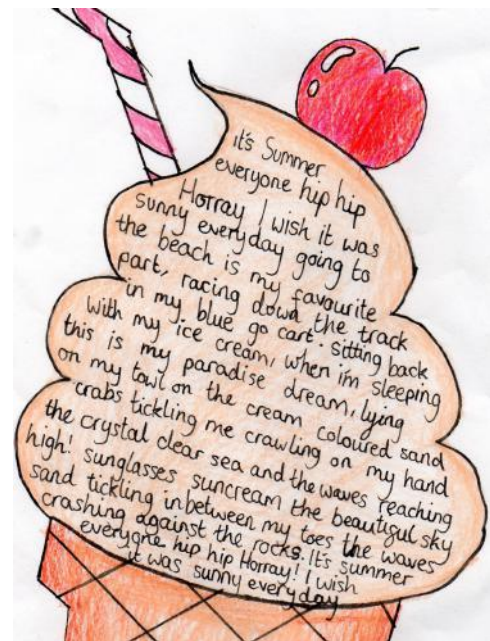 it's Summer
everyone hip hip
Horray I wish it was
sunny everyday going to
the beach is my favourite
part, racing down the track
in my blue go cart. Sitting back
with my ice cream, when i'm sleeping
this is my paradise dream, lying
on my towl on the cream coloured sand
crabs tickling me crawling on my hand
the crystal clear sea and the waves reaching
high! Sunglasses suncream the beautiful sky
sand tickling inbetween my toes the waves
crashing against the rocks. It's summer
everyone hip hip Horray! I wish
it was sunny everyday